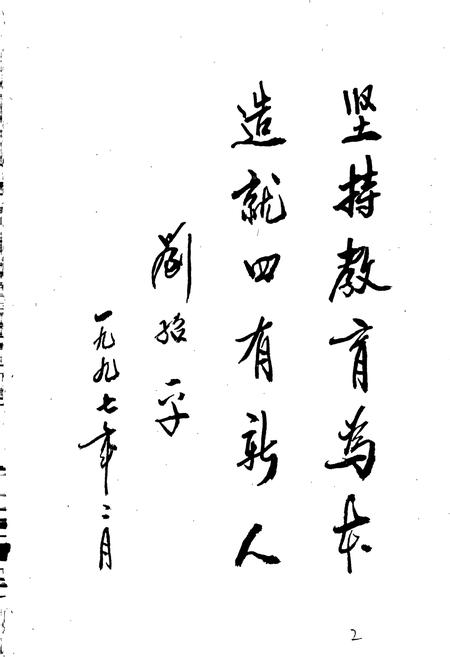 坚持教育为本
造就四有新人
劉治平
一九九七年二月
2